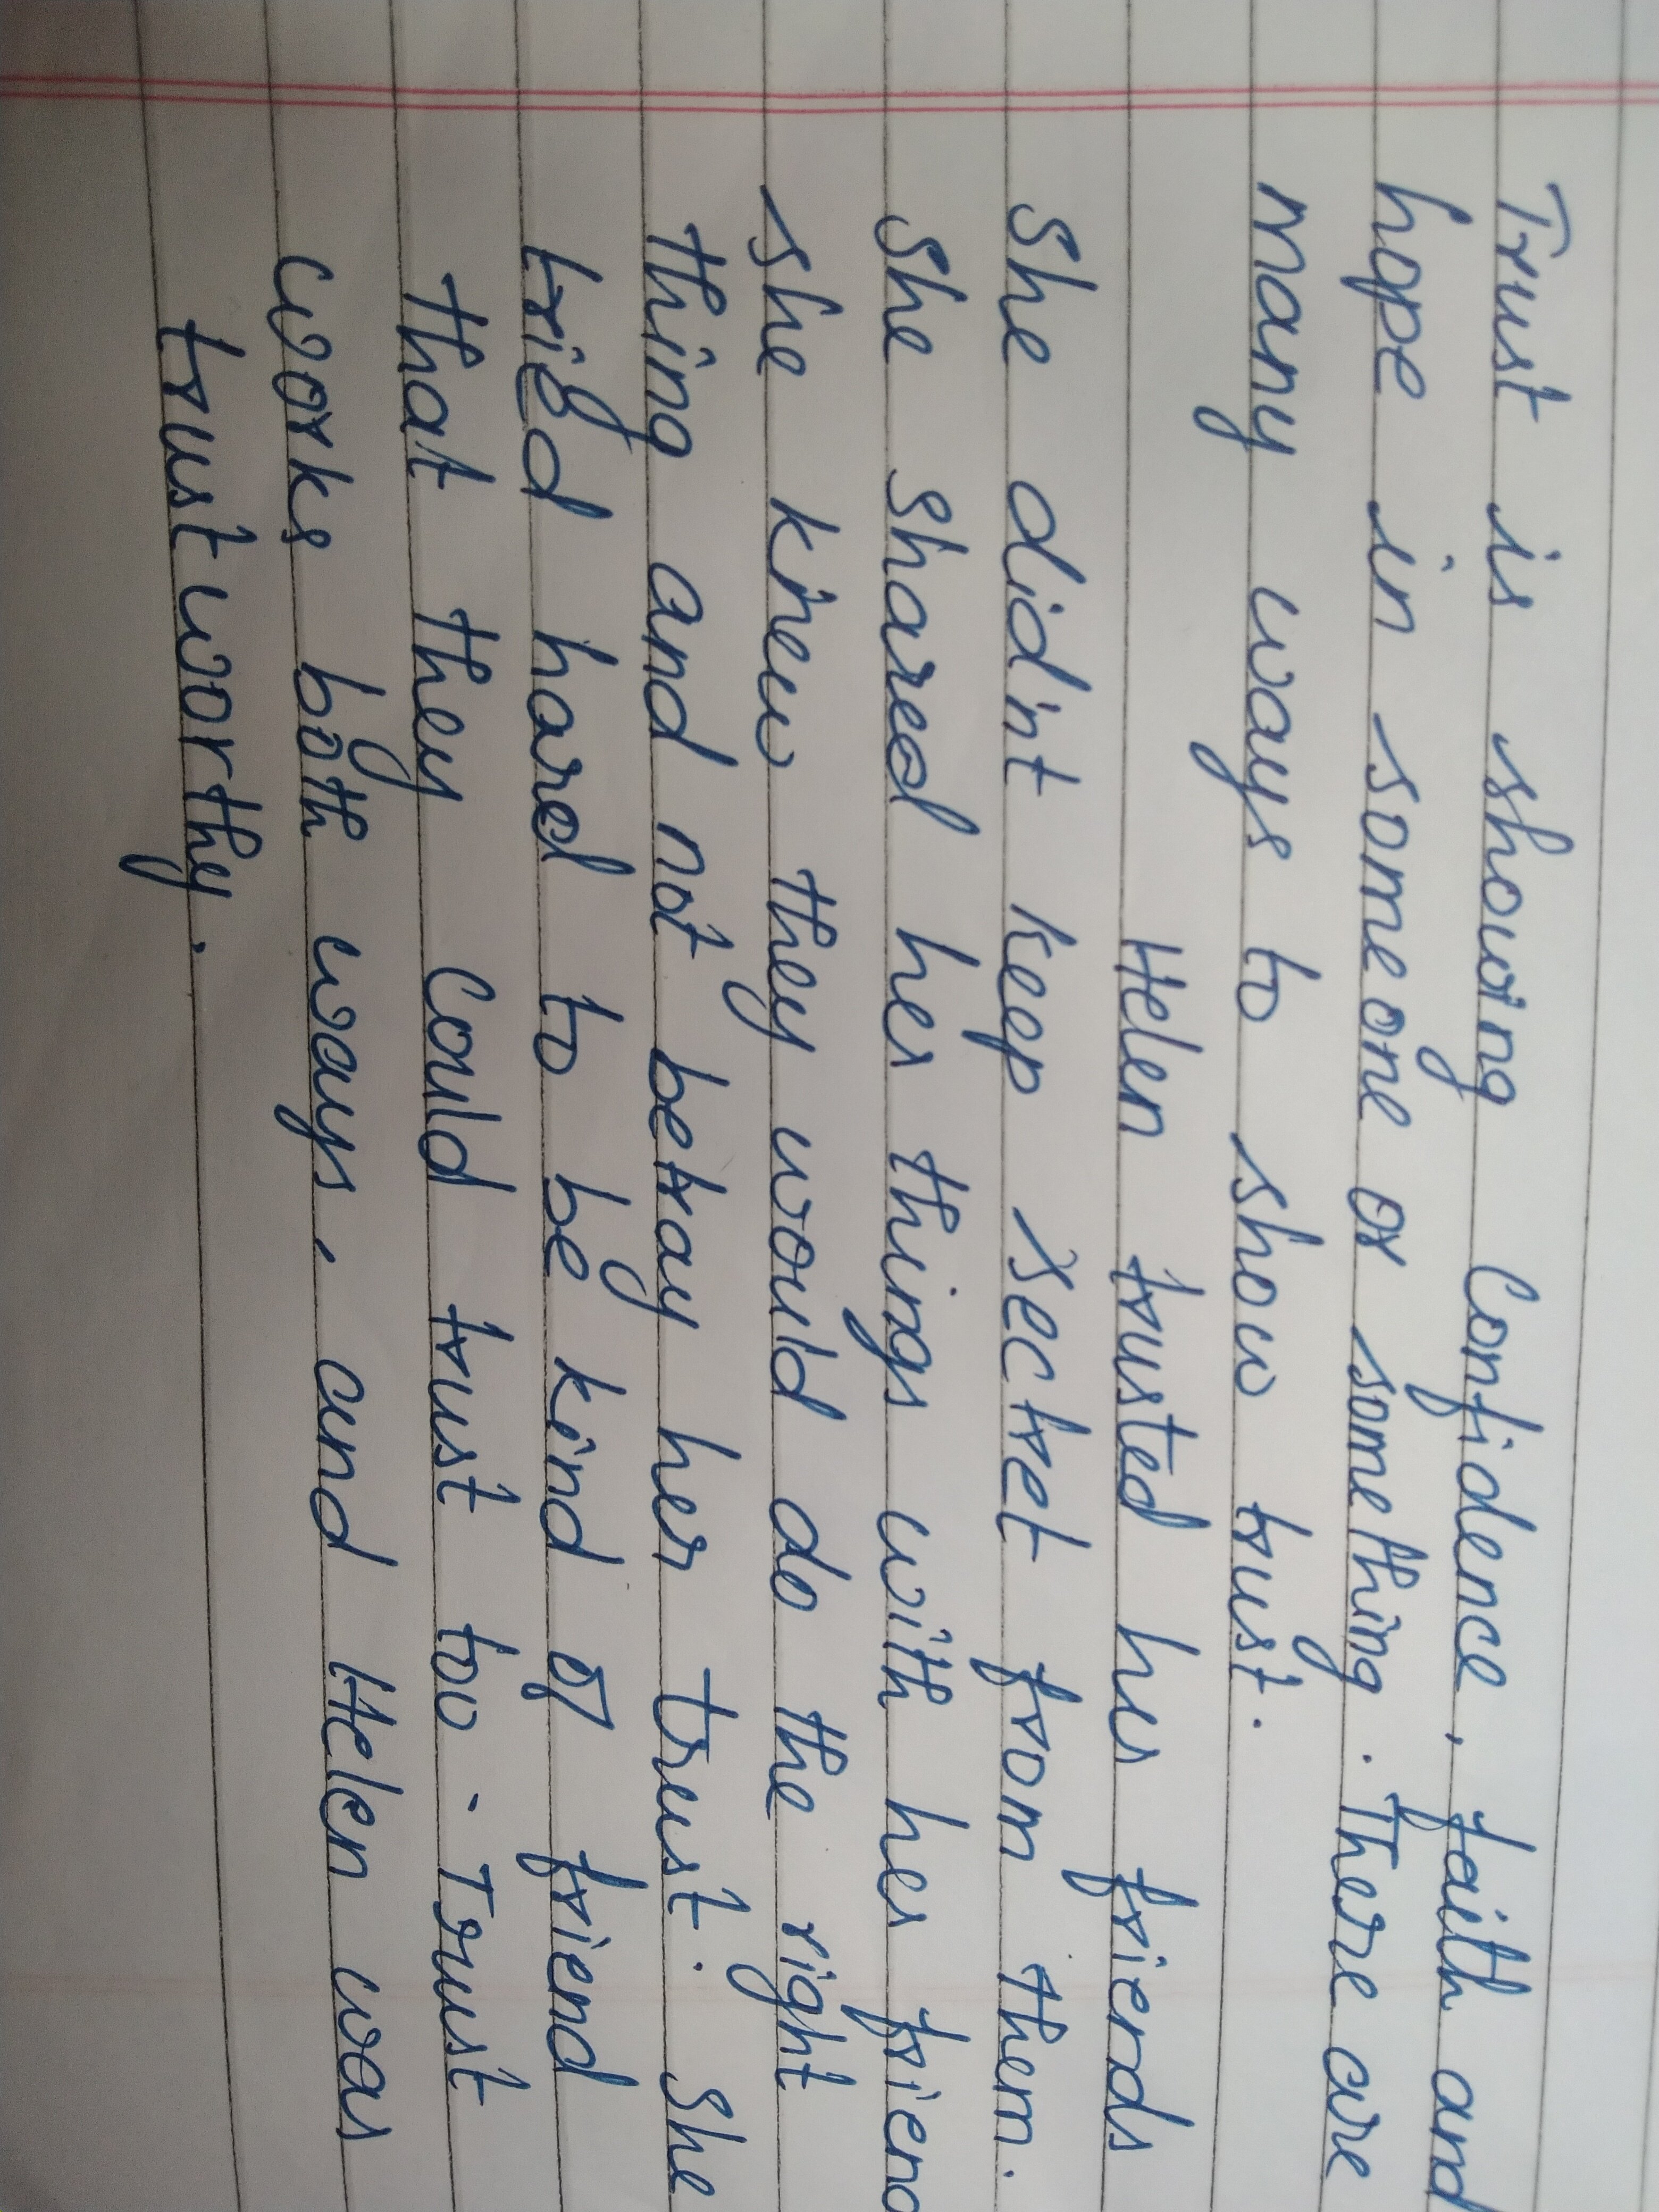 Trust is showing Confidence, faith and
hope in someone or something. There are
many ways to show trust.
Helen trusted her friends
She didn't keep secret from them.
She shared her things with her friend
she knew they would do the right
thing and not betray her trust. She
tried hard to be kind of friend
that they Could trust too. Trust
works both ways, and Helen was
trustworthy.